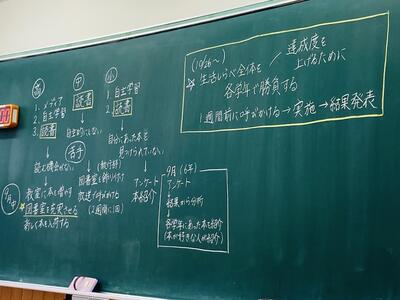 (10/26〜)
☆生活しらべ全体を
各学年で勝負する
／達成度を
上げるために
1週間前に呼びかける→実施→結果発表
高
1. メディア
2. 自主学習
3. 読書
↓
読む機会がない
↓
教室に本を増やす
☆図書室を充実させる
新しく本を入荷する
9月中
中
読書
↓
自主的にしない
苦手
(執行部)
図書室を飾り付け
放送で呼びかける
(2週間に1回)
小
1. 自主学習
2. 読書
↓
自分にあった本を
見つけられていない
↓
アンケート
本紹介
9月(6年)
アンケート
↓
結果から分析
↓
各学年にあった本を紹介
(本が好きな人が紹介)